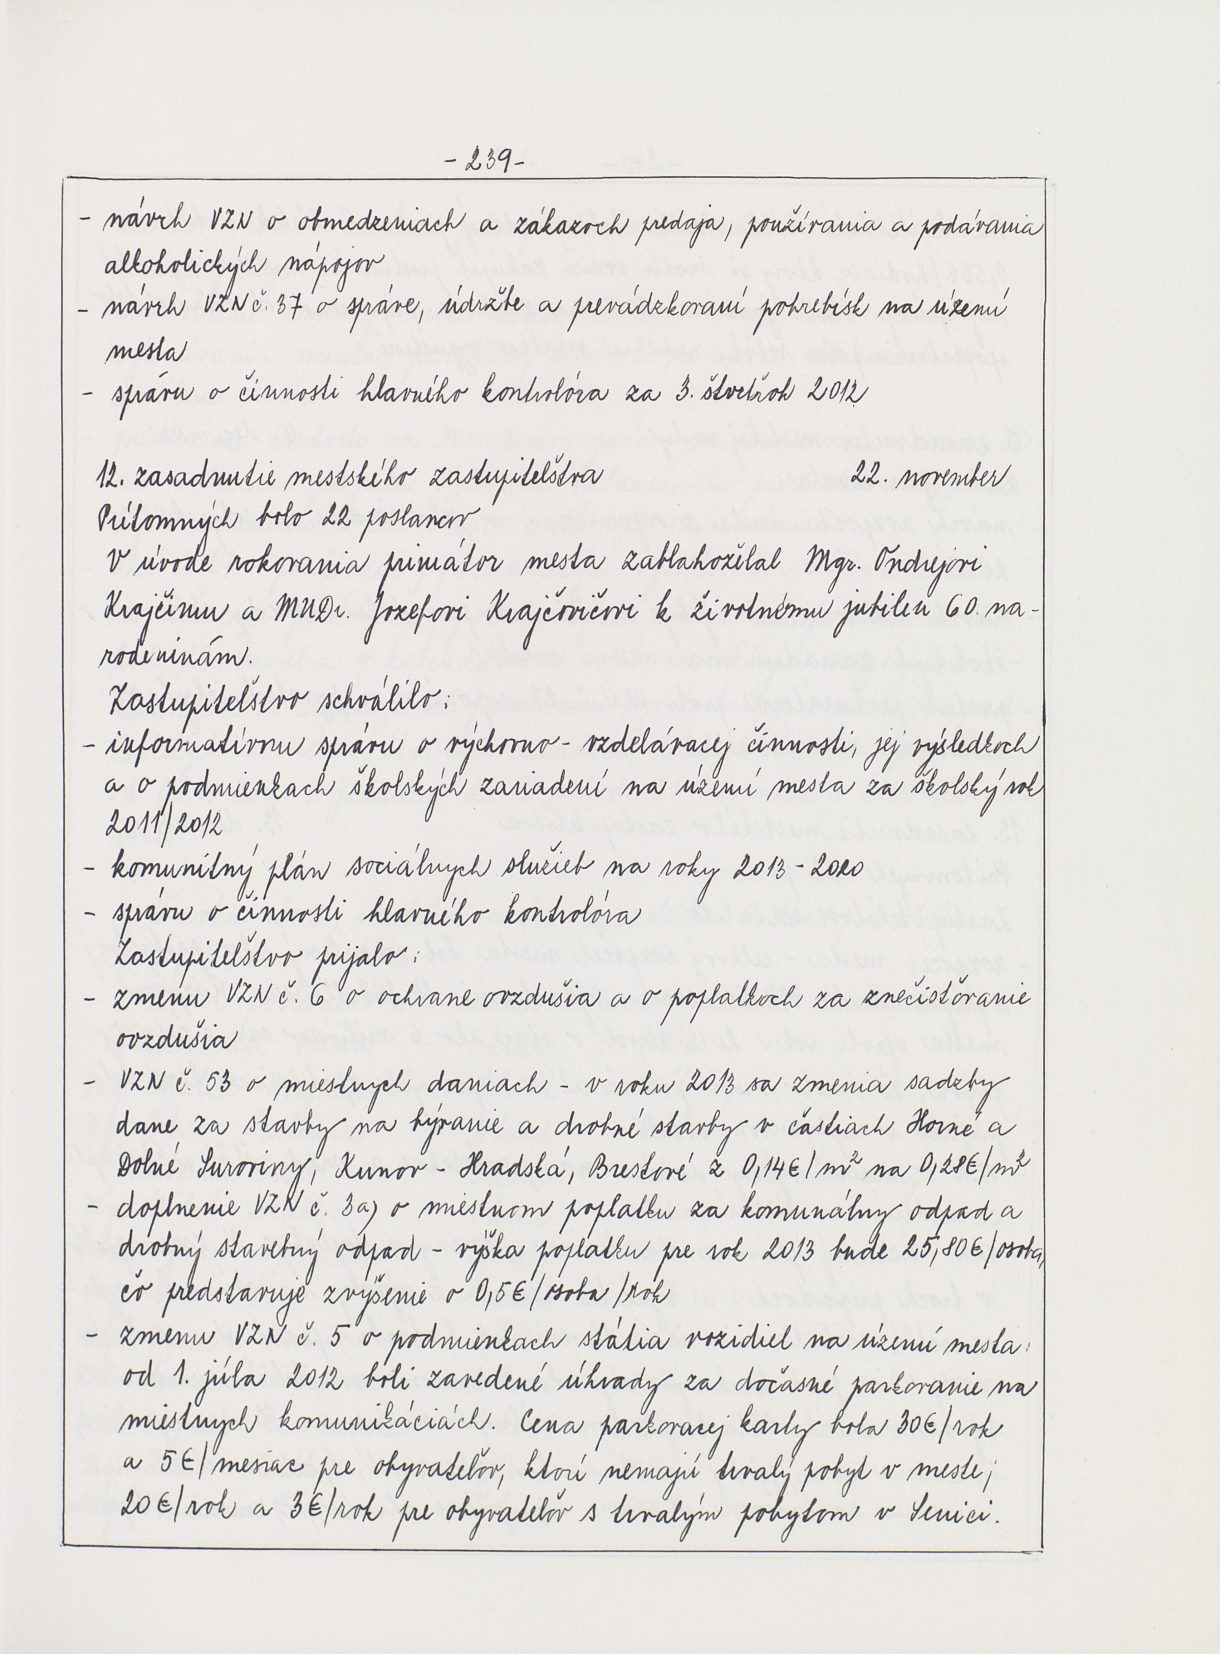 - 239 -
- návrh VZN o obmedzeniach a zákazoch predaja, používania a podávania
alkoholických nápojov
- návrh VZN č. 37 o správe, údržbe a prevádzkovaní pohrebísk na území
mesta
- správu o činnosti hlavného kontrolóra za 3. štvrťrok 2012
12. zasadnutie mestského zastupiteľstva 22. november
Prítomných bolo 22 poslancov
V úvode rokovania primátor mesta zablahoželal Mgr. Ondrejovi
Krajčímu a MUDr. Jozefovi Krajčovičovi k životnému jubileu 60. na-
rodeninám.
Zastupiteľstvo schválilo:
- informatívnu správu o výchovno - vzdelávacej činnosti, jej výsledkoch
a o podmienkach školských zariadení na území mesta za školský rok
2011/2012
- komunitný plán sociálnych služieb na roky 2013 - 2020
- správu o činnosti hlavného kontrolóra
Zastupiteľstvo prijalo:
- zmenu VZN č. 6 o ochrane ovzdušia a o poplatkoch za znečisťovanie
ovzdušia
- VZN č. 53 o miestnych daniach - v roku 2013 sa zmenia sadzby
dane za stavby na bývanie a drobné stavby v častiach Horné a
Dolné Suroviny, Kunov - Hradská, Brestové z 0,14€/m² na 0,28€/m²
- doplnenie VZN č. 3a) o miestnom poplatku za komunálny odpad a
drobný stavebný odpad - výška poplatku pre rok 2013 bude 25,80€/osoba,
čo predstavuje zvýšenie o 0,5€/osoba/rok
- zmenu VZN č. 5 o podmienkach státia vozidiel na území mesta:
od 1. júla 2012 boli zavedené úhrady za dočasné parkovanie na
miestnych komunikáciách. Cena parkovacej karty bola 30€/rok
a 5€/mesiac pre obyvateľov, ktorí nemajú trvalý pobyt v meste;
20€/rok a 3€/rok pre obyvateľov s trvalým pobytom v Senici.